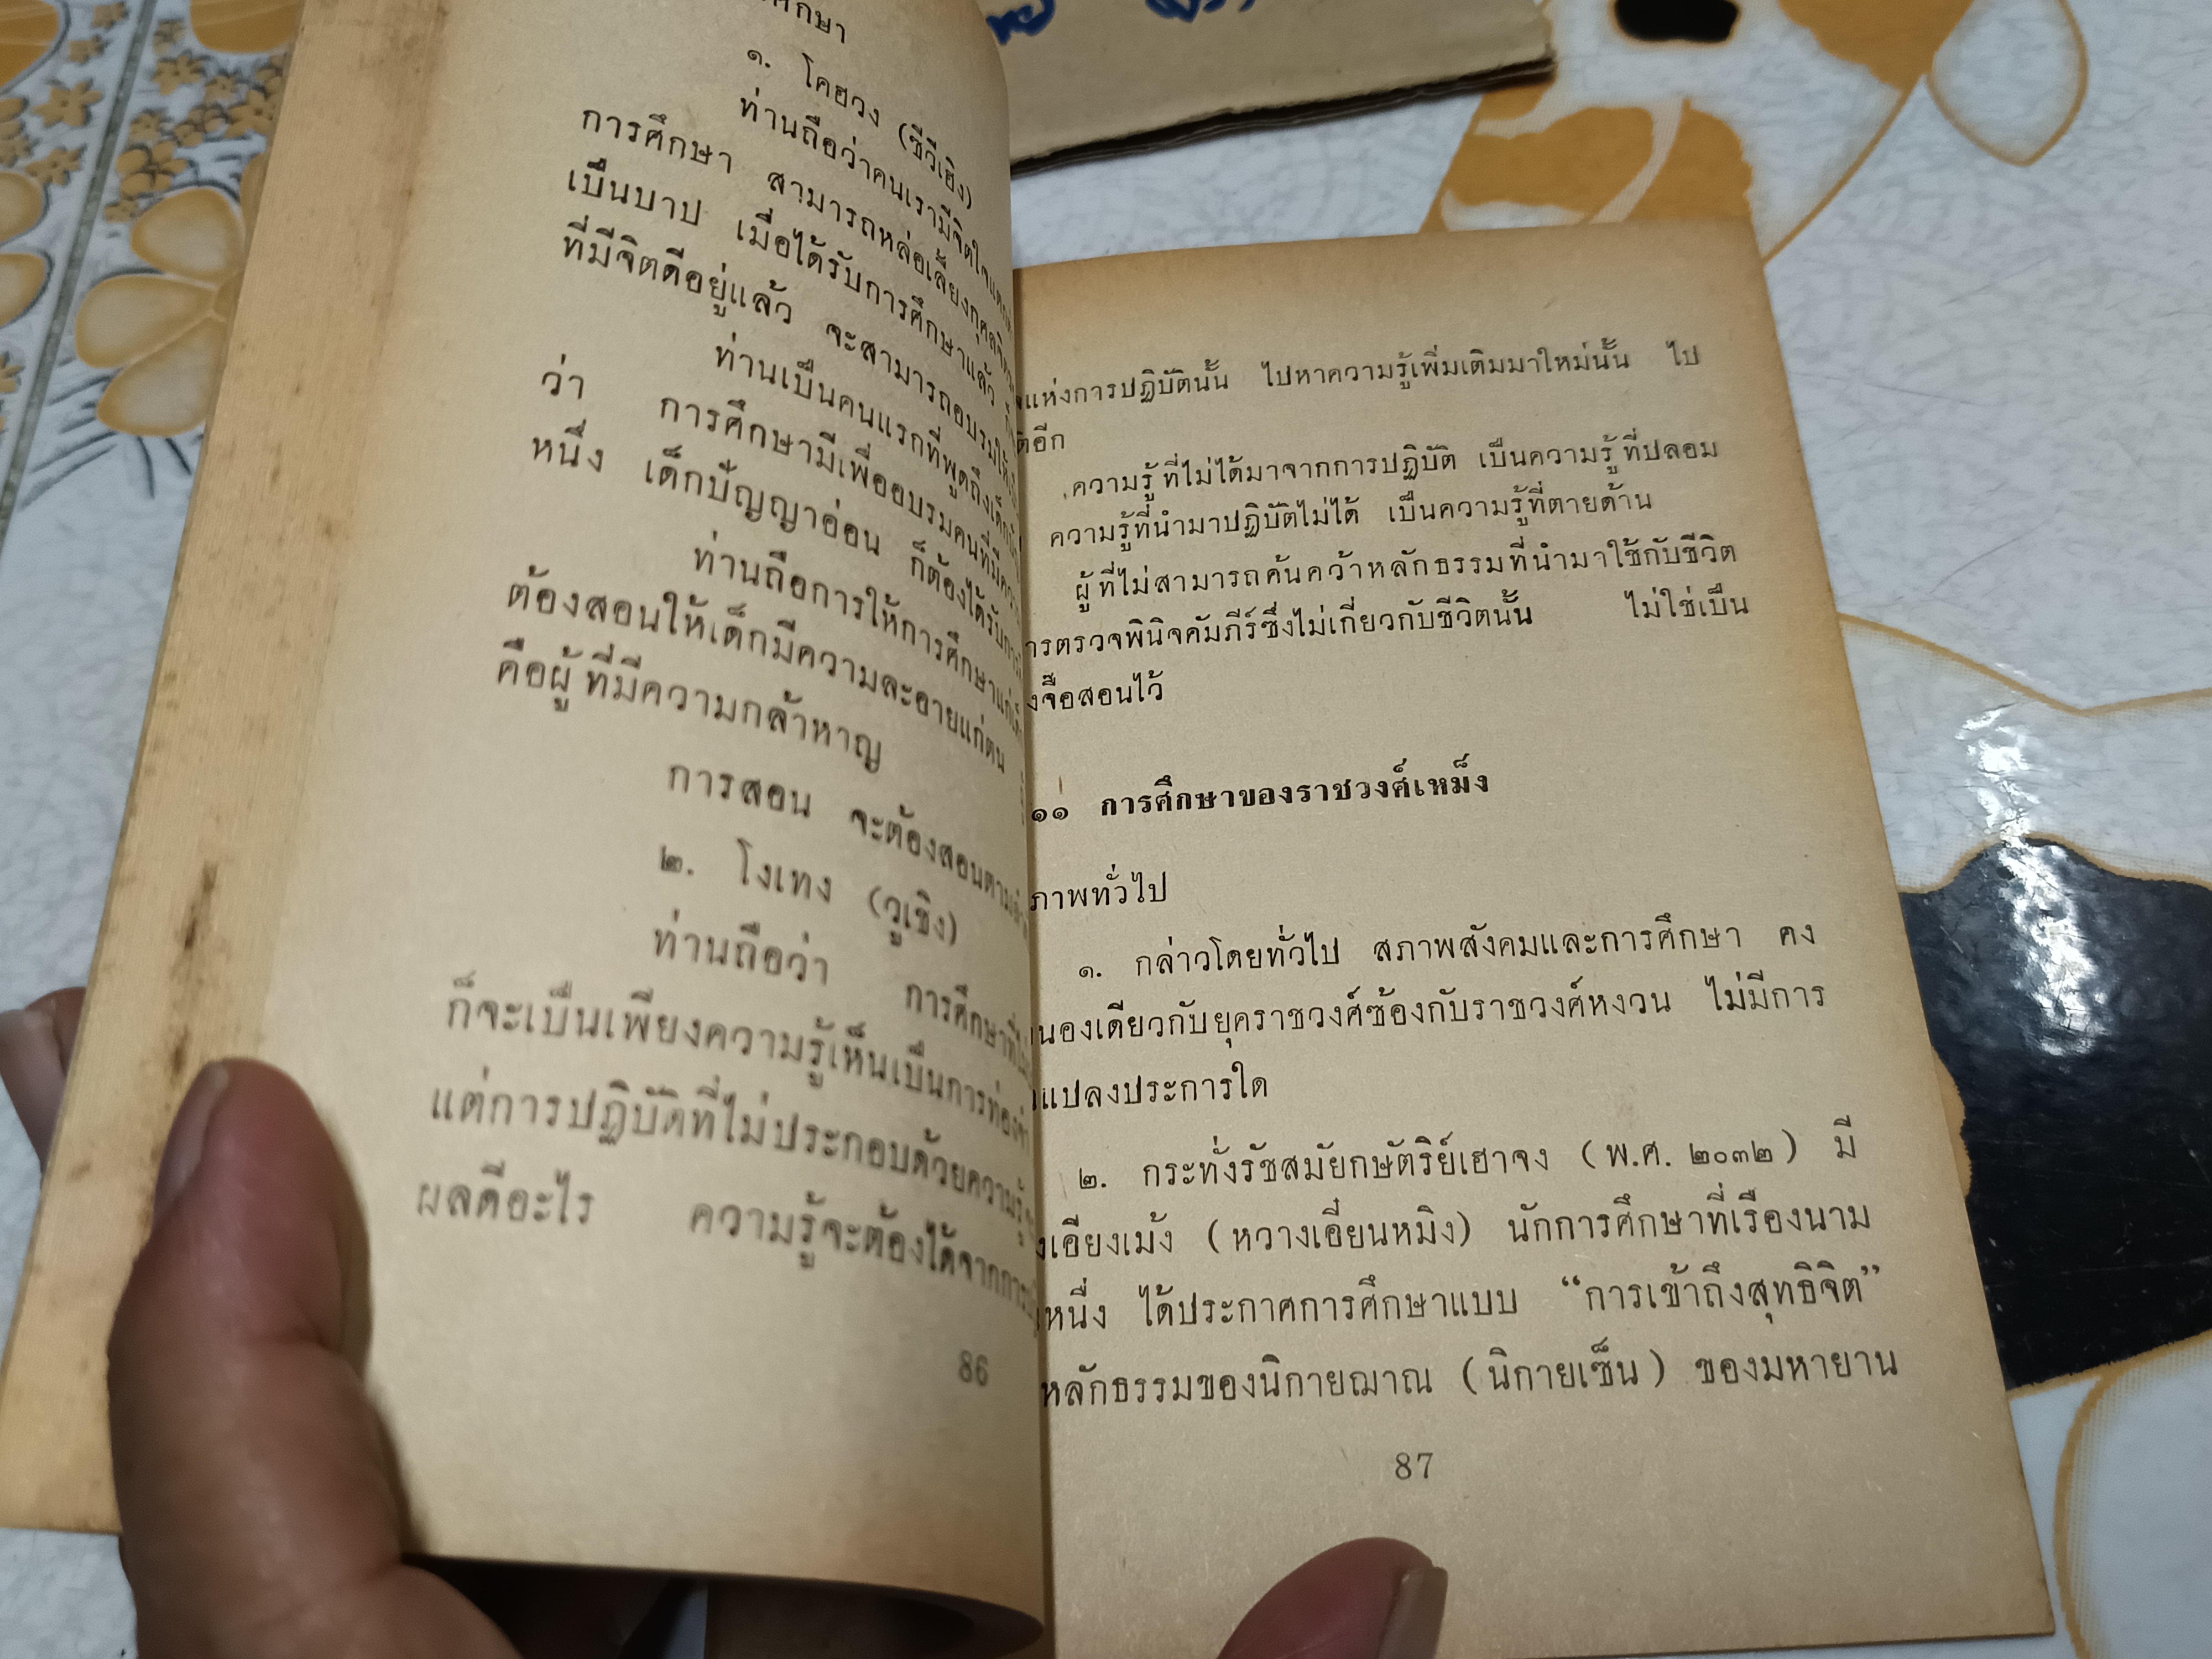 ๑. โคฮวง (ซีวีเฮิง)
ท่านถือว่าคนเรามีจิตใจ
การศึกษา สามารถหล่อเลี้ยงกุศลจิต
เป็นบาป เมื่อได้รับการศึกษาแล้ว
ที่มีจิตดีอยู่แล้ว จะสามารถอบรมให้
ท่านเป็นคนแรกที่พูดถึงเด็ก
ว่า การศึกษามีเพื่ออบรมคนที่มี
หนึ่ง เด็กปัญญาอ่อน ก็ต้องได้รับการ
ท่านถือการให้การศึกษาแก่เด็ก
ต้องสอนให้เด็กมีความละอายแก่ตน
คือผู้ที่มีความกล้าหาญ
การสอน จะต้องสอนตาม
๒. โงเทง (วูเชิง)
ท่านถือว่า การศึกษาที่
ก็จะเป็นเพียงความรู้เห็นเป็นการท่องจำ
แต่การปฏิบัติที่ไม่ประกอบด้วยความรู้
ผลดีอะไร ความรู้จะต้องได้จากการ
86
แห่งการปฏิบัตินั้น ไปหาความรู้เพิ่มเติมมาใหม่นั้น ไป
อีก
ความรู้ที่ไม่ได้มาจากการปฏิบัติ เป็นความรู้ที่ปลอม
ความรู้ที่นำมาปฏิบัติไม่ได้ เป็นความรู้ที่ตายด้าน
ผู้ที่ไม่สามารถค้นคว้าหลักธรรมที่นำมาใช้กับชีวิต
ารตรวจพินิจคัมภีร์ซึ่งไม่เกี่ยวกับชีวิตนั้น ไม่ใช่เป็น
งจื๊อสอนไว้
๑๑ การศึกษาของราชวงศ์เหม็ง
ภาพทั่วไป
๑. กล่าวโดยทั่วไป สภาพสังคมและการศึกษา คง
นองเดียวกับยุคราชวงศ์ซ้องกับราชวงศ์หงวน ไม่มีการ
แปลงประการใด
๒. กระทั่งรัชสมัยกษัตริย์เฮาจง (พ.ศ. ๒๐๓๒) มี
งเอียงเม้ง (หวางเอี๋ยนหมิง) นักการศึกษาที่เรืองนาม
หนึ่ง ได้ประกาศการศึกษาแบบ “การเข้าถึงสุทธิจิต”
หลักธรรมของนิกายฌาณ (นิกายเซ็น) ของมหายาน
87